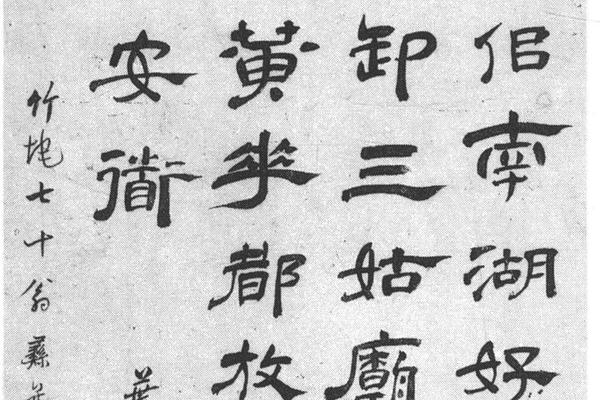 侣南湖好
卸三姑廟
黄華都放
安衜
竹垞七十翁彝